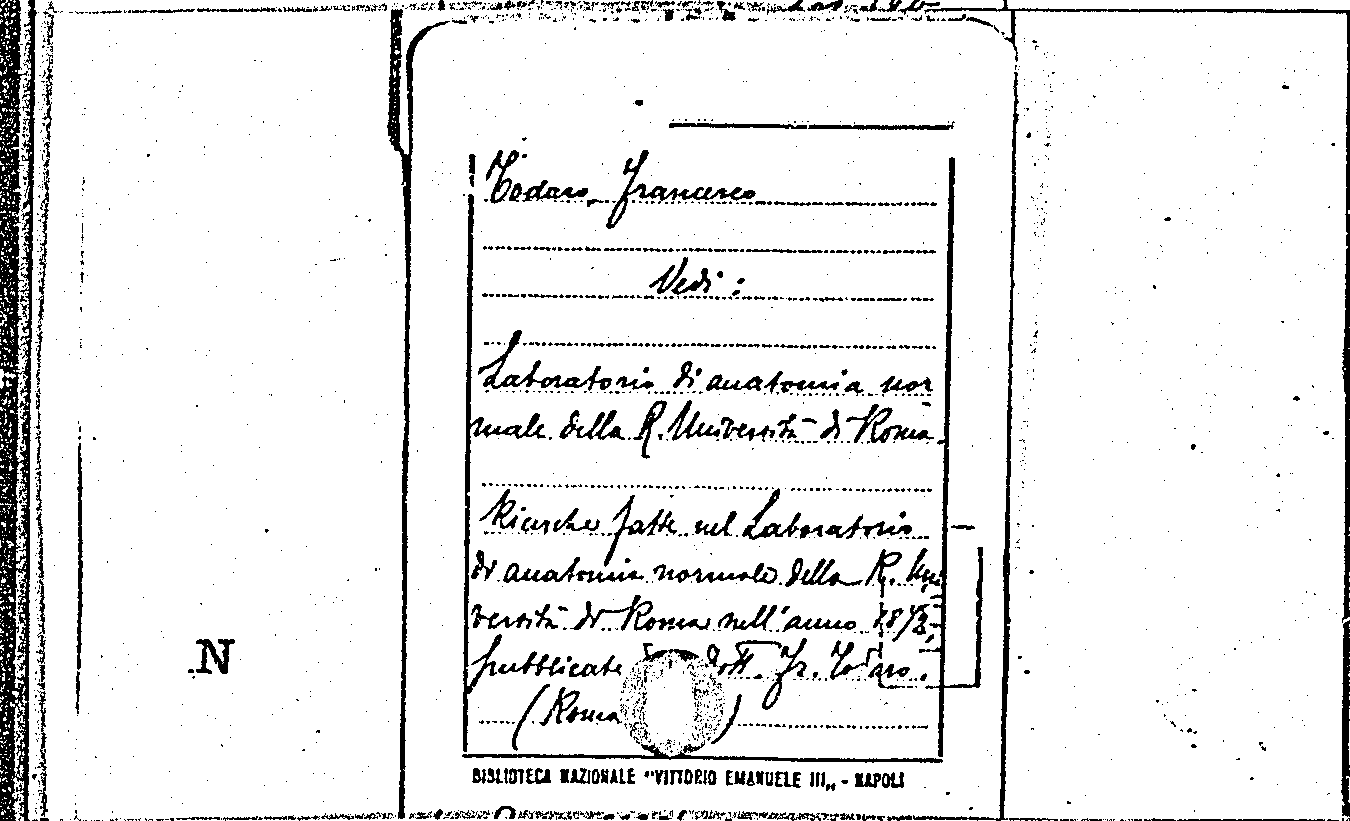 Todaro, Francesco
Vedi:
Laboratorio di anatomia nor
male della R. Università di Roma.
Ricerche fatte nel Laboratorio
di anatomia normale della R. Uni
versità di Roma nell'anno 1872,
pubblicate dott. Fr. Todaro.
(Roma )
N
BIBLIOTECA NAZIONALE "VITTORIO EMANUELE III„ - NAPOLI